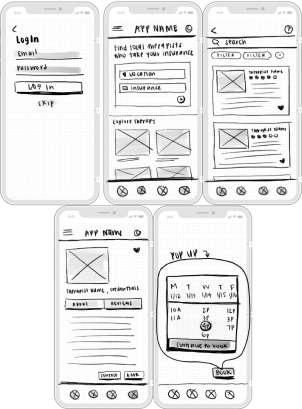 Login
Email
Password
LOG IN
SKIP
APP NAME
Find local therapists
who take your insurance
LOCATION
INSURANCE
EXPLORE THERAPY
SEARCH
FILTER
FILTER
THERAPIST NAME
THERAPIST NAME
APP NAME
THERAPIST NAME, CREDENTIALS
ABOUT
REVIEWS
CONTACT
BOOK
POP UP
M T W T F
1/12 1/13 1/14 1/15 1/16
10A 2P 12P
11A 3P 3P
4P 7P
6P
CONTINUE TO BOOK
BOOK